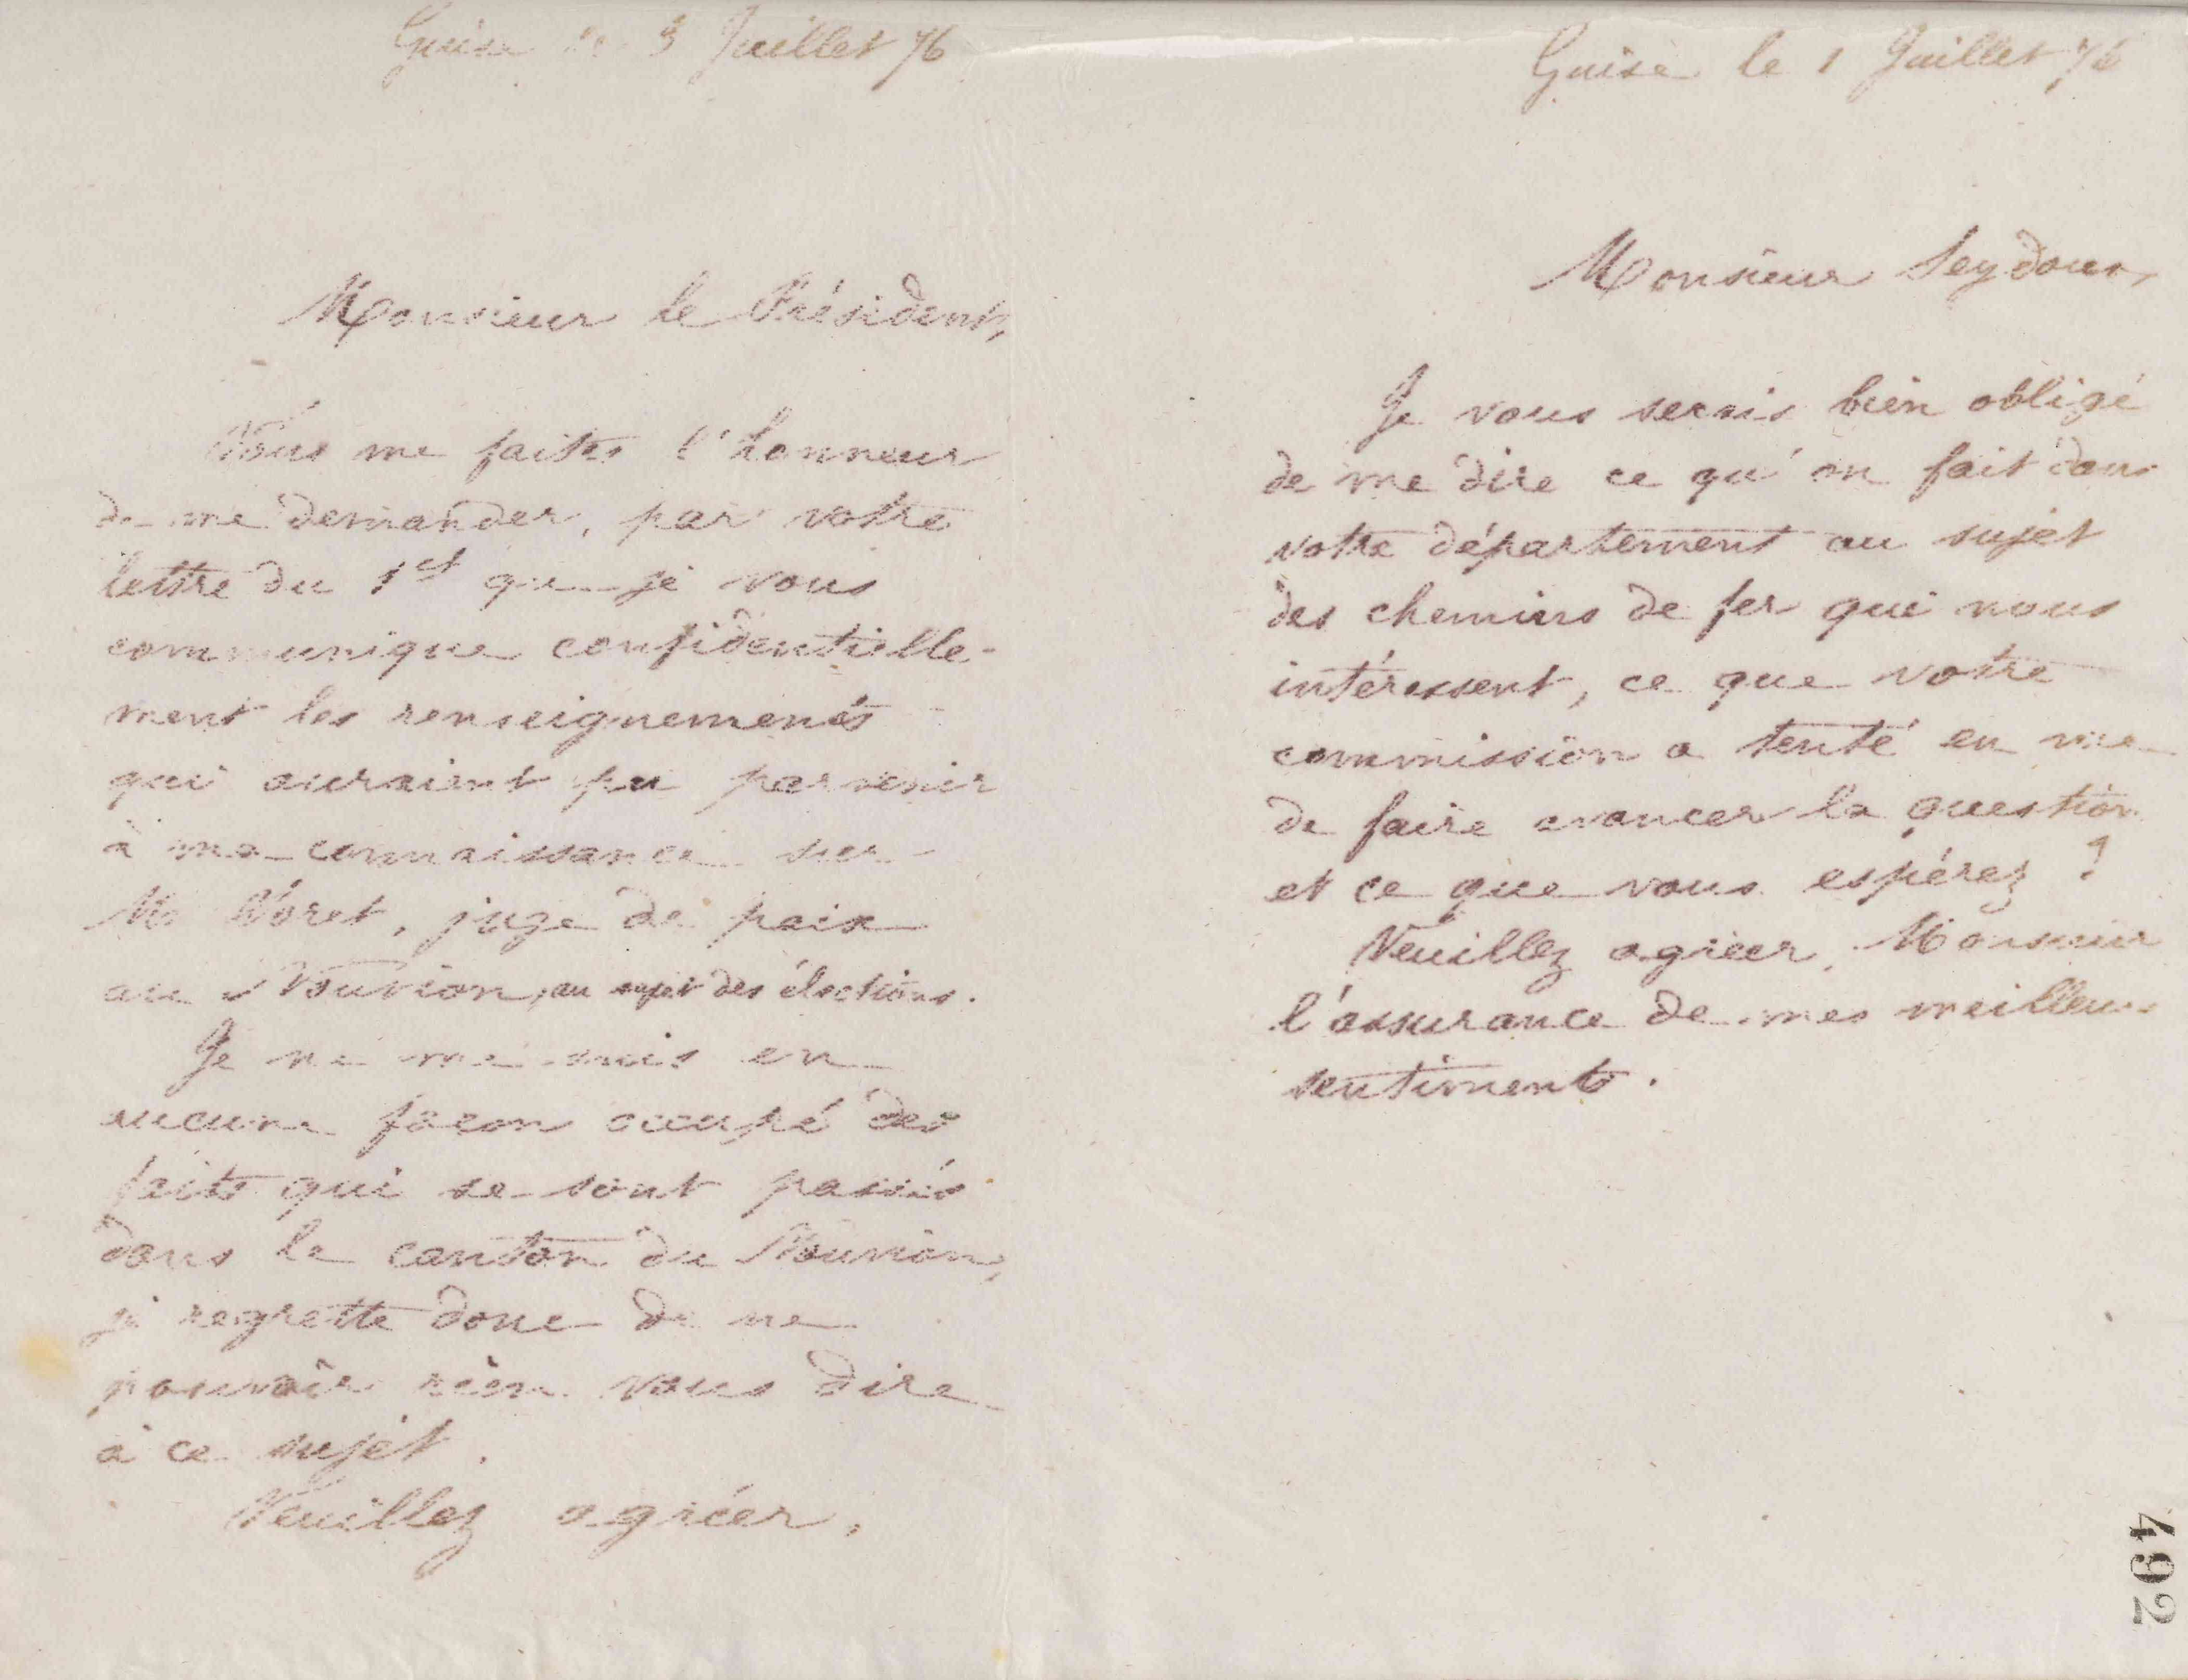 Guise le 3 Juillet 76
Monsieur le Président,
Vous me faites l'honneur
de me demander, par votre
lettre du 1er que je vous
communique confidentielle-
ment les renseignements
qui auraient pu parvenir
à ma connaissance sur
Mr Voret, juge de paix
au Nouvion, au sujet des élections.
Je ne me suis en
aucune façon occupé des
faits qui se sont passés
dans le canton du Nouvion,
je regrette donc de ne
pouvoir rien vous dire
à ce sujet.
Veuillez agréer,
Guise le 1 Juillet 76
Monsieur Seydoux,
Je vous serais bien obligé
de me dire ce qu'on fait dans
votre département au sujet
des chemins de fer qui nous
intéressent, ce que votre
commission a tenté en vue
de faire avancer la question
et ce que vous espérez ?
Veuillez agréer, Monsieur
l'assurance de mes meilleurs
sentiments.
492